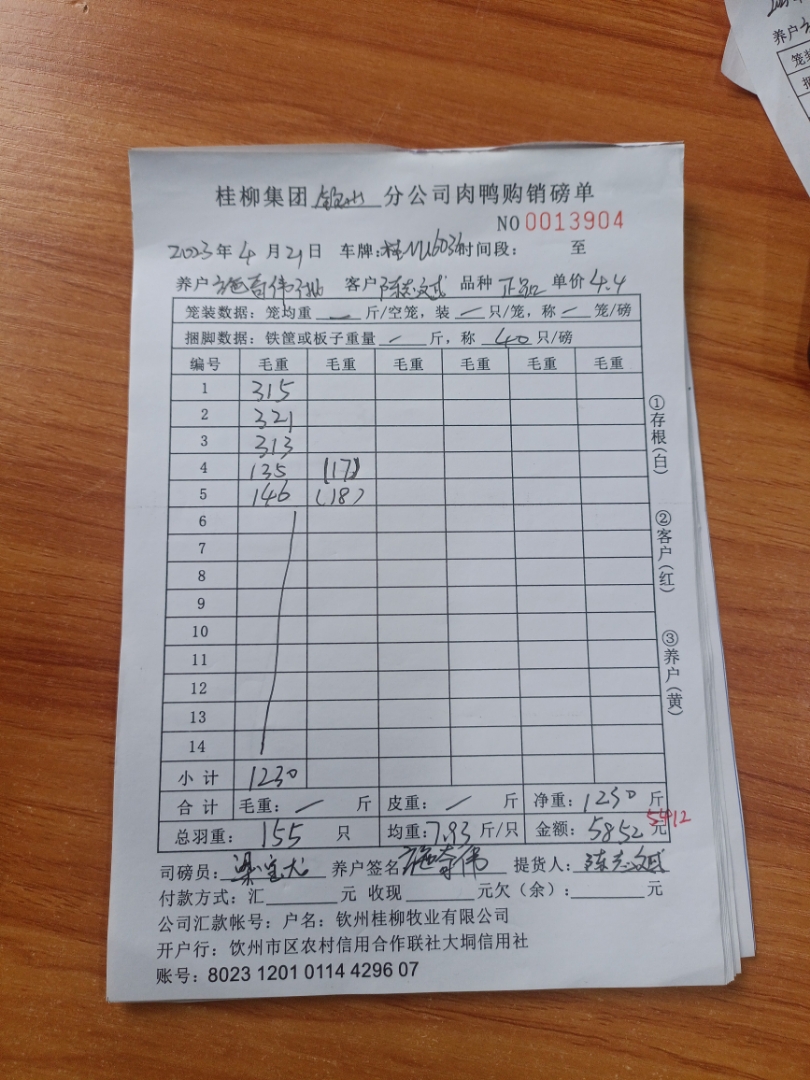 桂柳集团 钦州 分公司肉鸭购销磅单
NO 0013904
2023年 4 月 21 日 车牌: 时间段: 至
养户 施奇伟 客户 陈志斌 品种 正品 单价 4.4
笼装数据: 笼均重 — 斤/空笼, 装 — 只/笼, 称 — 笼/磅
捆脚数据: 铁筐或板子重量 — 斤, 称 40 只/磅
编号 毛重 毛重 毛重 毛重 毛重 毛重
1 315
2 321
3 313
4 135 (17)
5 146 (18)
6
7
8
9
10
11
12
13
14
小计 1230
合计 毛重: — 斤 皮重: — 斤 净重: 1230 斤
总羽重: 155 只 均重: 7.93 斤/只 金额: 5852 元
5412
司磅员: 养户签名 施奇伟 提货人: 陈志斌
付款方式: 汇 元 收现 元欠(余): 元
公司汇款帐号: 户名: 钦州桂柳牧业有限公司
开户行: 饮州市区农村信用合作联社大垌信用社
账号: 8023 1201 0114 4296 07
①存根(白)
②客户(红)
③养户(黄)
养户